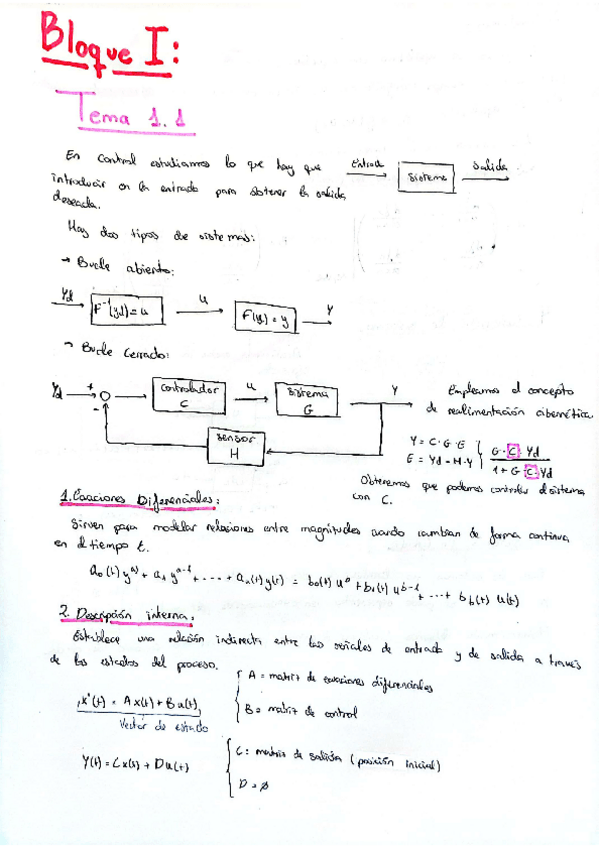 Bloque I:
Tema 1.1
En control estudiamos lo que hay que
introducir en la entrada para obtener la salida
deseada.
Entrada
sistema
Salida
Hay dos tipos de sistemas:
→ Bucle abierto:
Yd
F⁻¹(yd) = u
u
F(y) = y
Y
→ Bucle cerrado:
Yd
+
-
controlador
C
u
sistema
G
Y
sensor
H
Empleamos el concepto
de realimentación cibernética
Y = C·G·E
E = Yd - H·Y
G·C·Yd
1 + G·C·Yd
Obtenemos que podemos controlar el sistema
con C.
1. Ecuaciones Diferenciales:
Sirven para modelar relaciones entre magnitudes cuando cambian de forma continua
en el tiempo t.
a₀(t) yᵃ⁾ + a₁ yᵃ⁻¹ + .... + aₐ(t) y(t) = b₀(t) uᵇ + b₁(t) uᵇ⁻¹ + ... + b_b(t) u(t)
2. Descripción interna:
Establece una relación indirecta entre las señales de entrada y de salida a través
de los estados del proceso.
x'(t) = Ax(t) + Bu(t)
Vector de estado
A = matriz de ecuaciones diferenciales
B = matriz de control
Y(t) = Cx(s) + Du(t)
C: matriz de salida (posición inicial)
D = ø